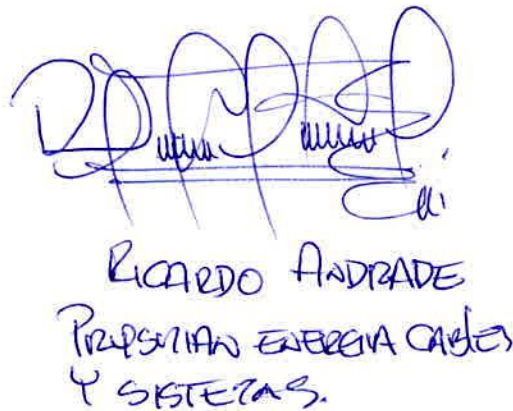 RICARDO ANDRADE
PRYSMIAN ENERGIA CABLES
Y SISTEMAS.